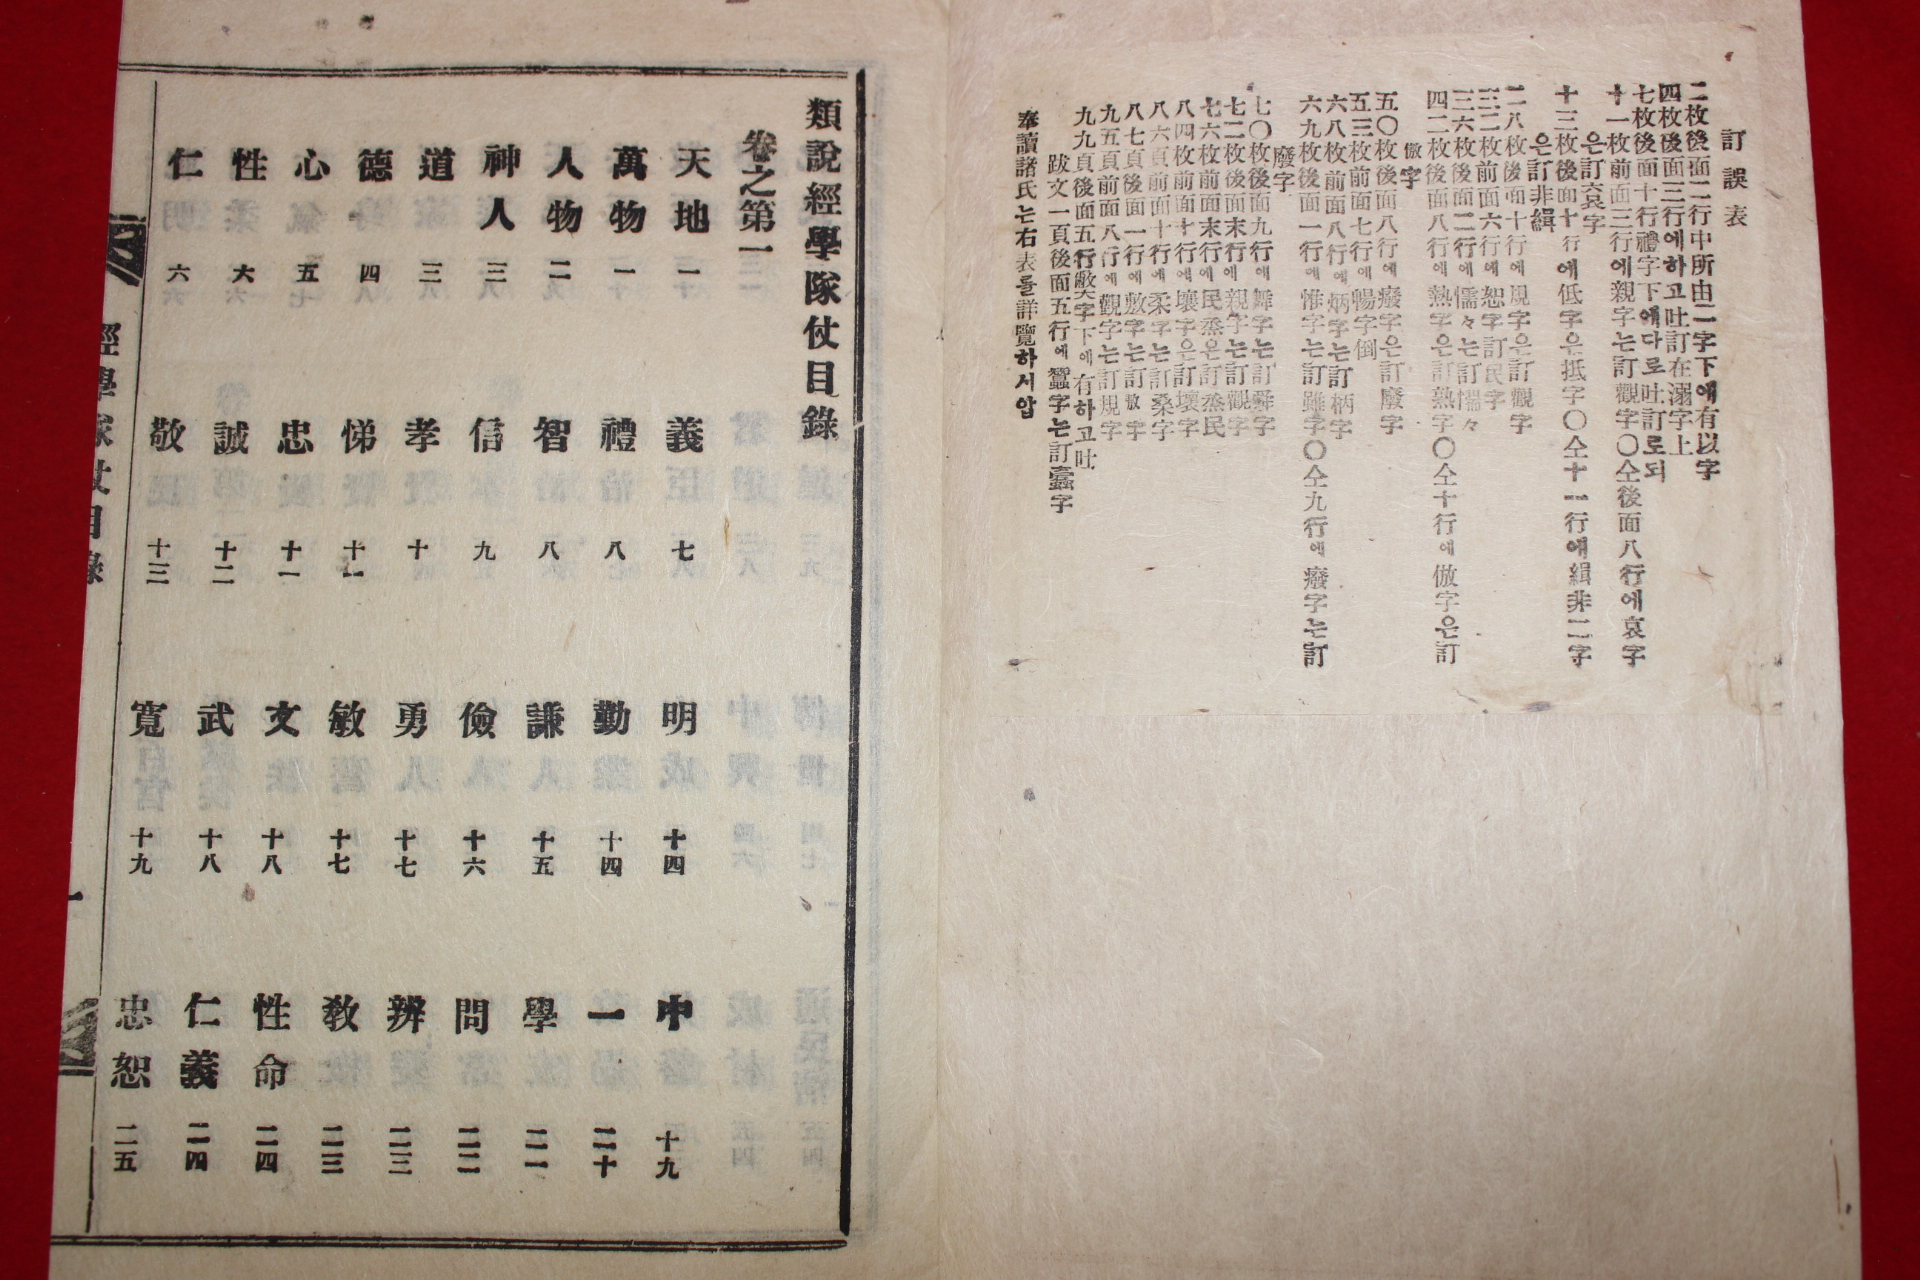 訂誤表
二枚後面二行中所由二字下애有以字
四枚後面三行에하고吐訂在溺字上
七枚後面十行禮字下애다로吐訂로되
十一枚前面三行에親字는訂觀字〇仝後面八行에哀字
은訂衮字
十三枚後面十行에低字은抵字〇仝十一行애緝非二字
은訂非緝
二八枚後面十行에規字은訂觀字
三二枚前面六行에恕字訂民字
三六枚後面二行에儒々는訂惴々
四二枚後面八行에熱字은訂熟字〇仝十行에倣字은訂
傲字
五〇枚後面八行에癈字은訂廢字
五三枚前面七行에暢字倒
六八枚前面八行에炳字는訂柄字
六九枚後面一行에惟字는訂雖字〇仝九行에癈字는訂
廢字
七〇枚後面九行에舞字는訂舜字
七二枚後面末行에親字는訂觀字
七六枚前面末行에民烝은訂烝民
八四枚前面十行에壤字은訂壞字
八六頁前面十行에柔字는訂桑字
八七頁後面一行에敷字는訂敬字
九五頁前面八行에觀字는訂規字
九九頁後面五行獘字下에有하고吐
跋文一頁後面五行에蠶字는訂蠹字
奉讀諸氏는右表를詳覽하시압
類說經學隊仗目錄
卷之第一
天地 一 義 七 明 十四 中 十九
萬物 一 禮 八 勤 十四 一 二十
人物 二 智 八 謙 十五 學 二一
神人 三 信 九 儉 十六 問 二二
道 三 孝 十 勇 十七 辨 二三
德 四 悌 十一 敏 十七 敎 二三
心 五 忠 十一 文 十八 性命 二四
性 六 誠 十二 武 十八 仁義 二四
仁 六 敬 十三 寬 十九 忠恕 二五
經學隊仗目錄 一